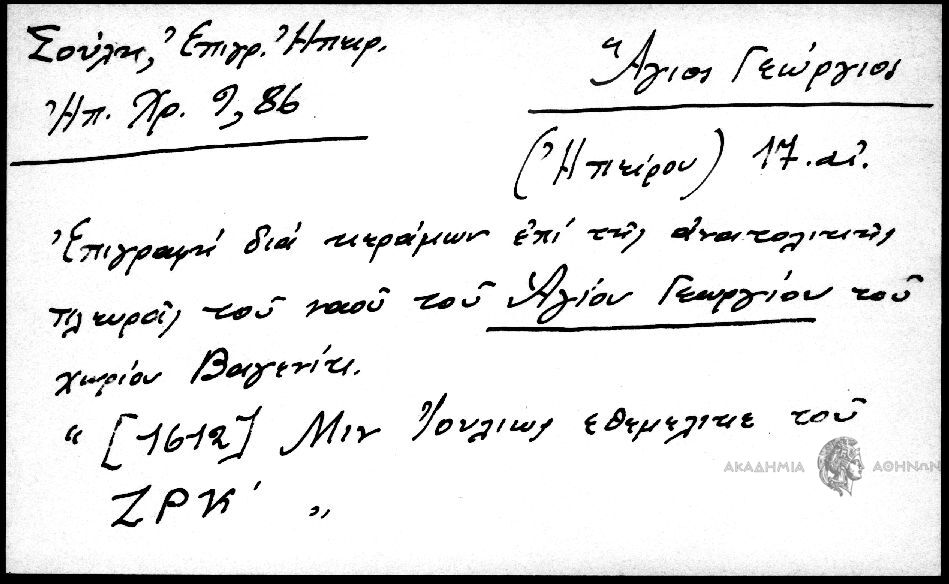 Σούλη, Ἐπιγρ. Ἠπειρ.
Ἠπ. Χρ. 9, 86
Ἅγιος Γεώργιος
(Ἠπείρου) 17. αἰ.
Ἐπιγραφή διά κεράμων ἐπί τῆς ἀνατολικῆς
πλευρᾶς τοῦ ναοῦ τοῦ Ἁγίου Γεωργίου τοῦ
χωρίου Βαγενίτι.
“ [1612] Μιν Ἰουλιως εθεμελικε τοῦ
ΖΡΚ΄ „
ΑΚΑΔΗΜΙΑ ΑΘΗΝΩΝ